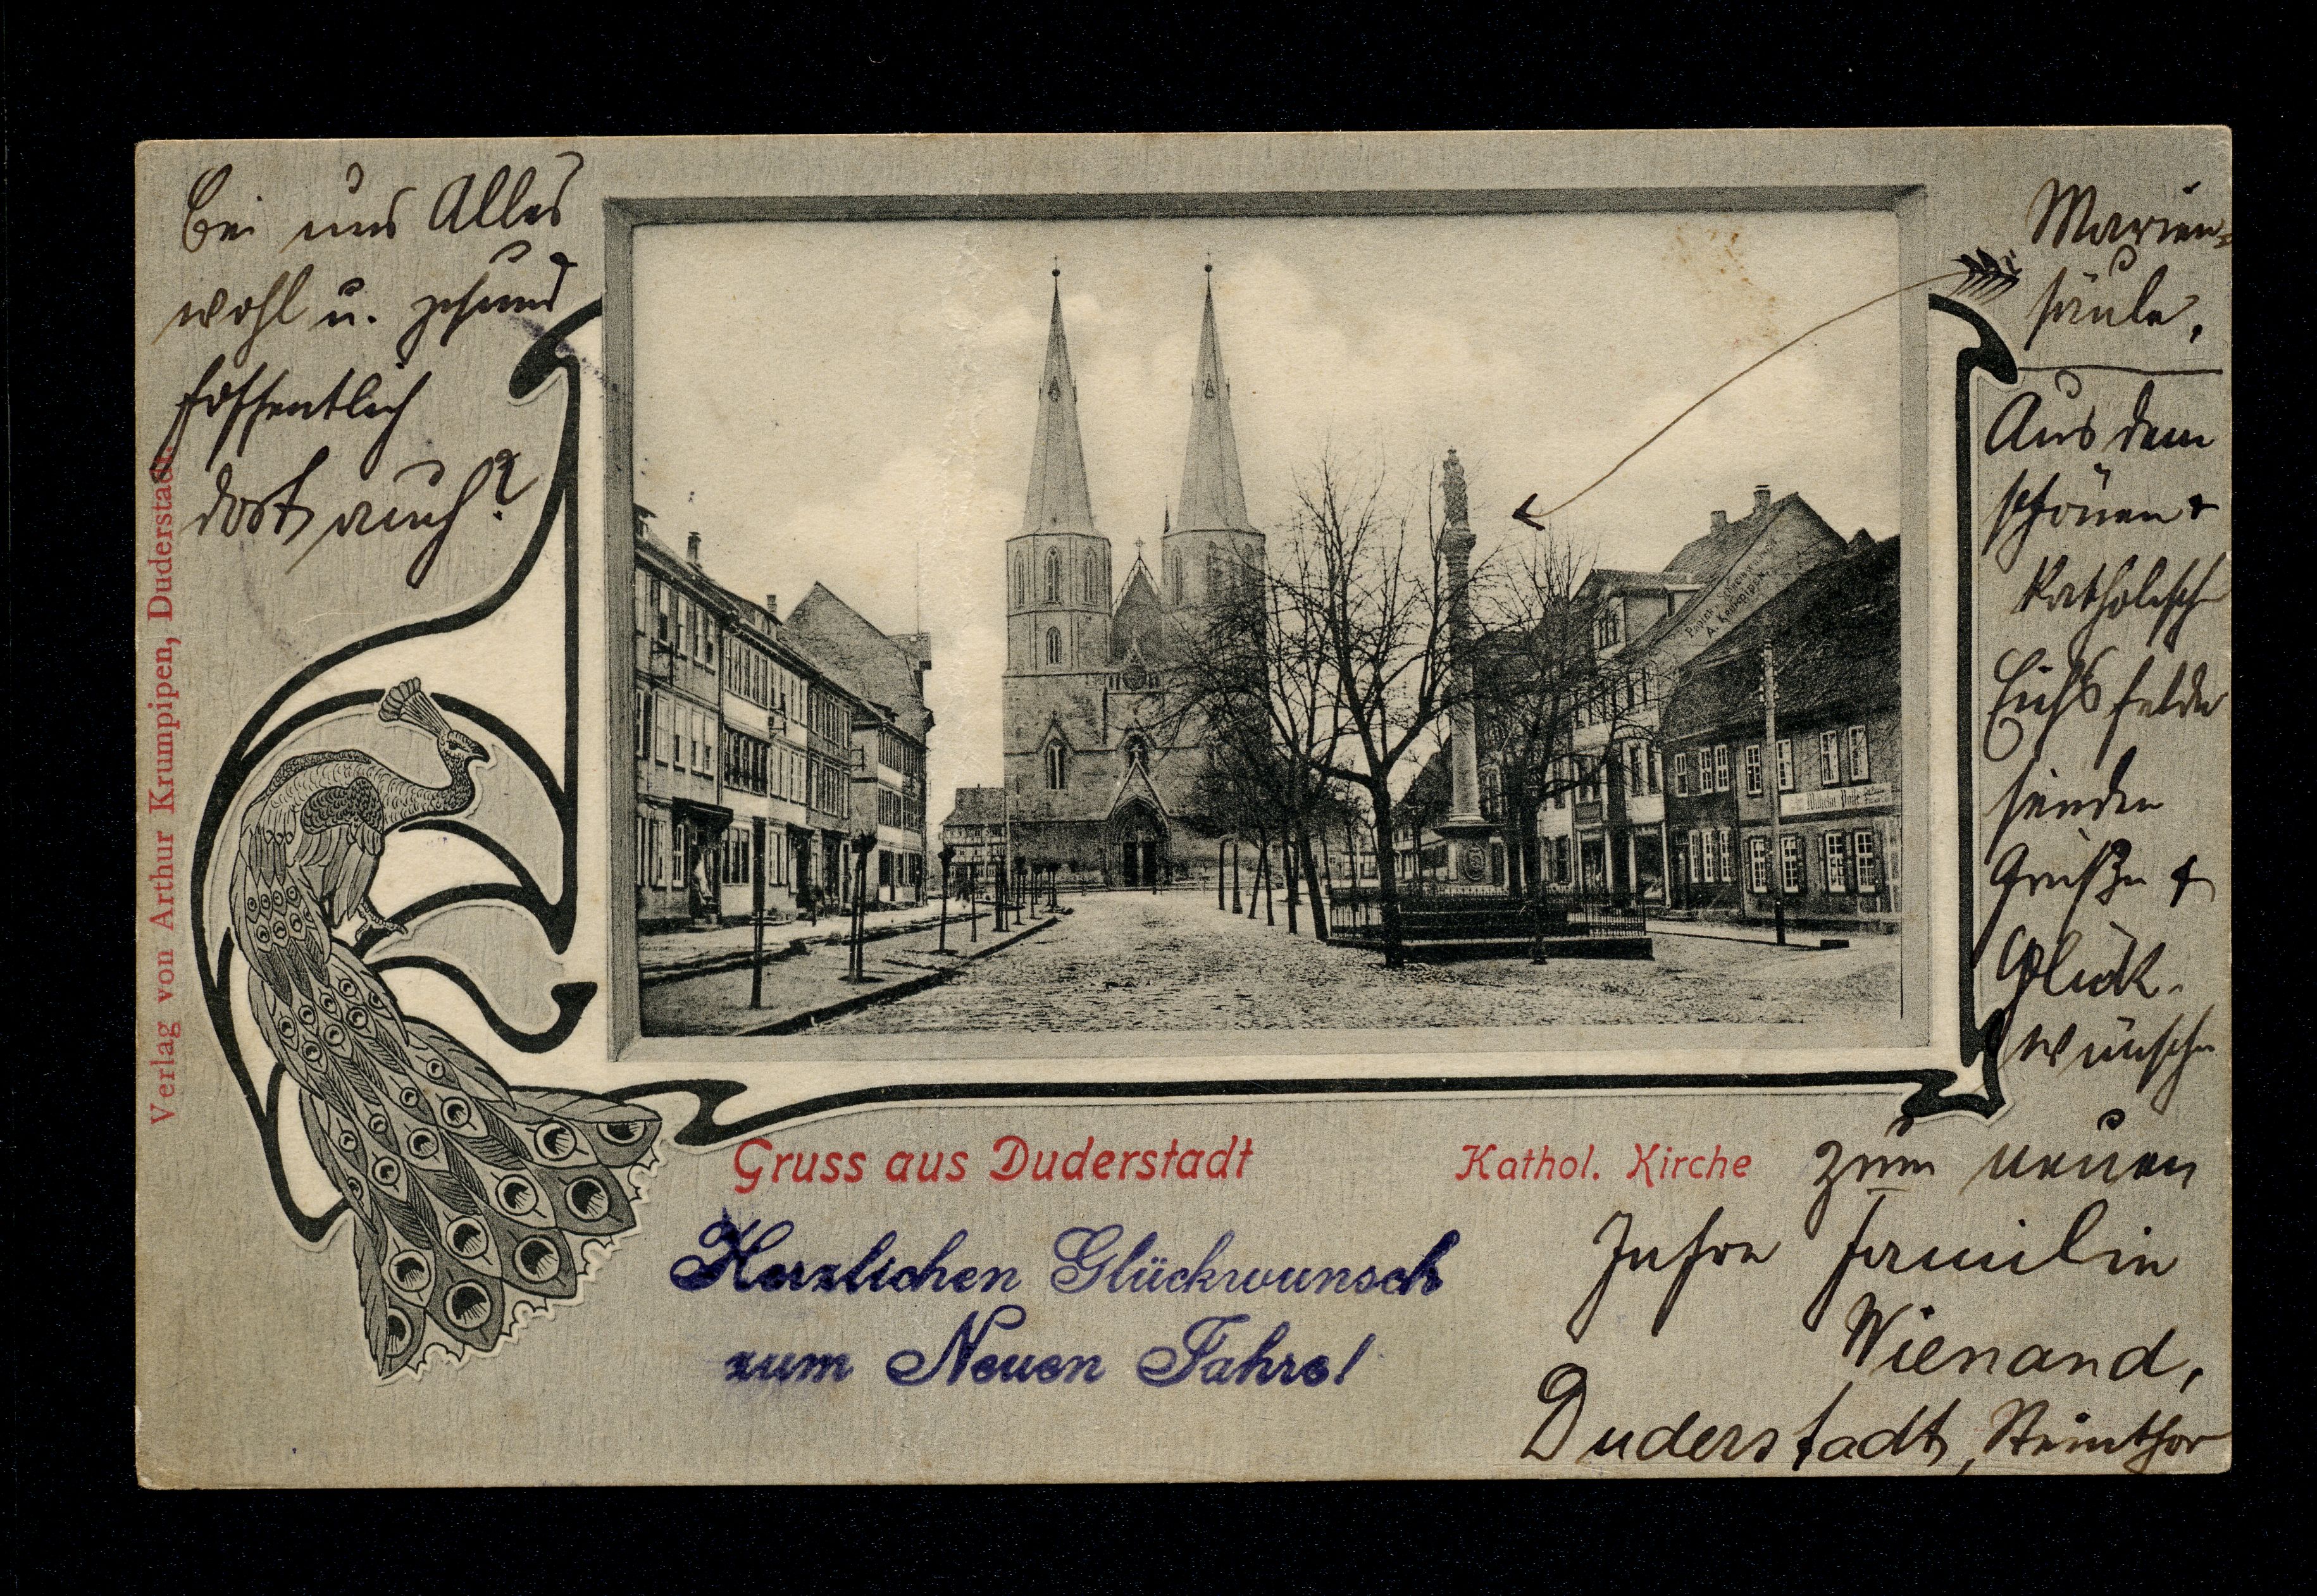 Bei uns Alles
wohl u. gesund
hoffentlich
dort auch?
Marien-
säule.
Aus dem
schönen
katholische
Eichsfelde
senden
Grüße &
Glück-
wünsche
zum neuen
Jahre Familie
Wienand,
Duderstadt, Steinthor
Gruss aus Duderstadt
Kathol. Kirche
Herzlichen Glückwunsch
zum Neuen Jahre!
Verlag von Arthur Krumpipen, Duderstadt.
A. KRUMPIPEN
Wilhelm